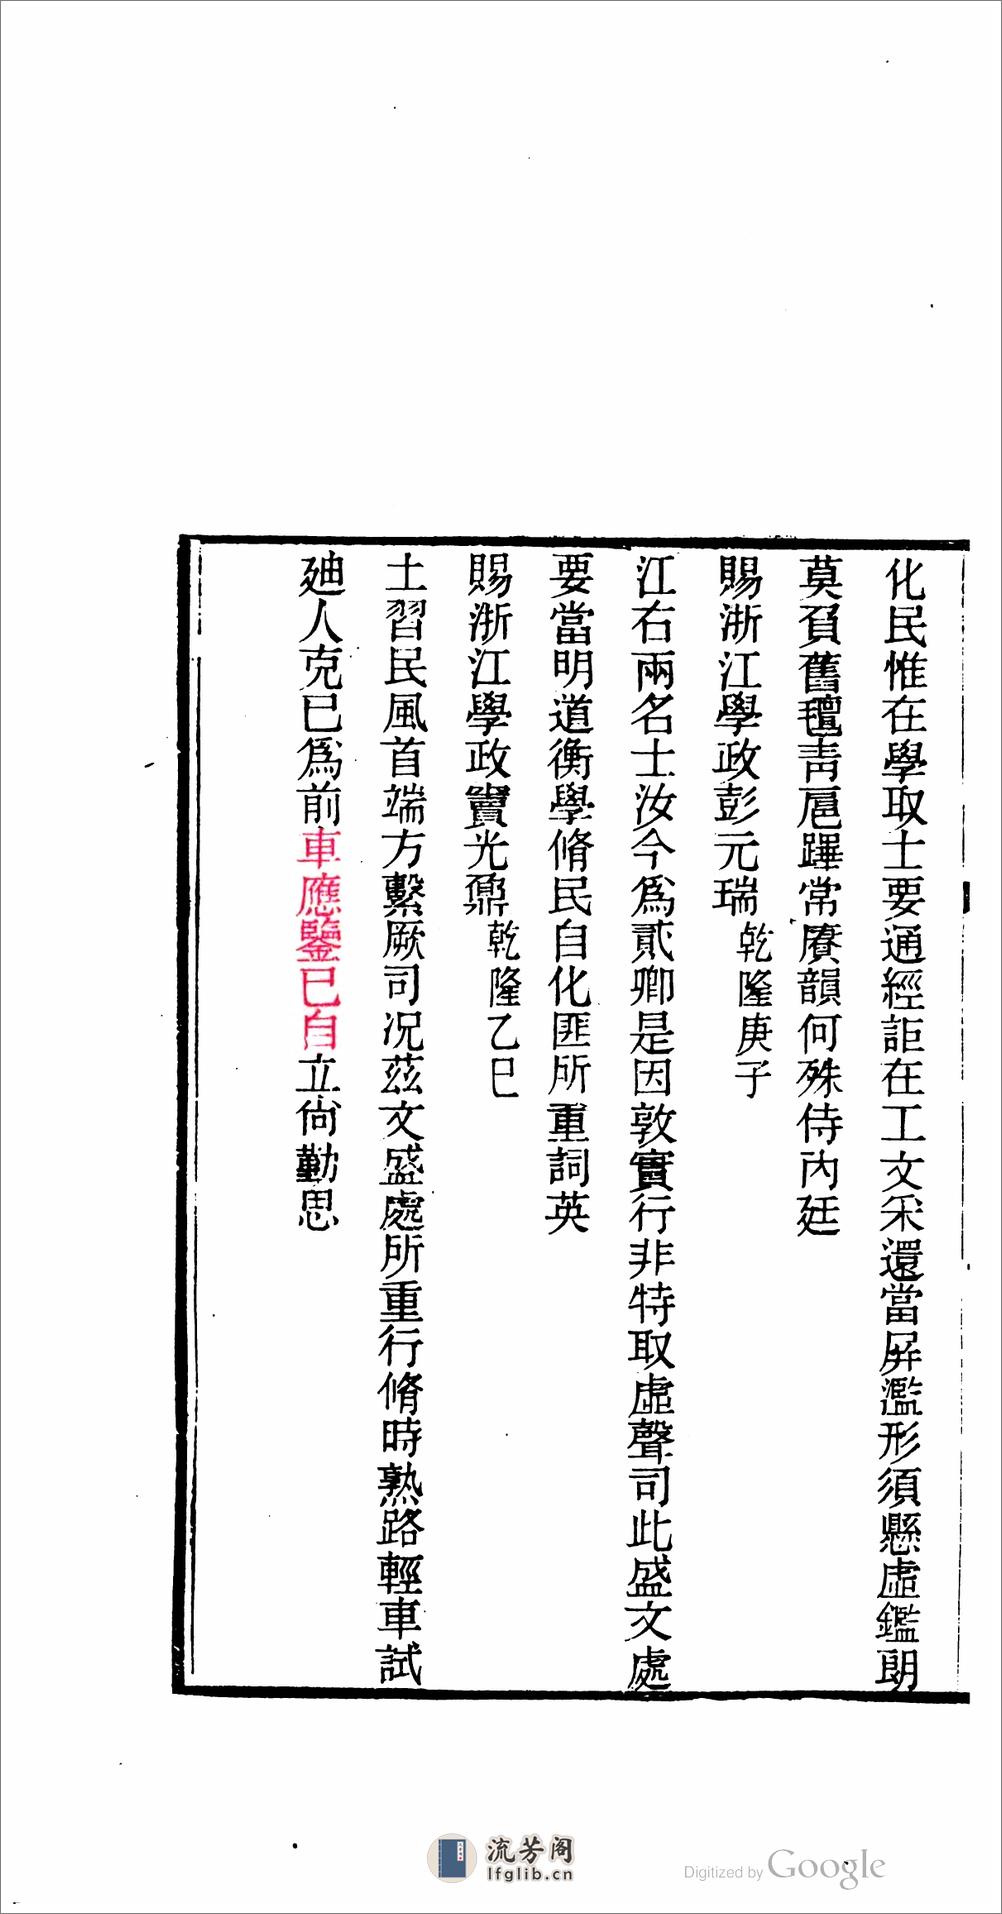 化民惟在學取士要通經詎在工文采還當屏濫形須懸虛鑑朗
莫負舊氊靑戹蹕常賡韻何殊侍內廷
賜浙江學政彭元瑞乾隆庚子
江右兩名士汝今爲貳卿是因敦實行非特取虛聲司此盛文處
要當明道衡學脩民自化匪所重詞英
賜浙江學政竇光鼐乾隆乙巳
士習民風首端方繫厥司况茲文盛處所重行脩時熟路輕車試
廸人克己爲前車應鑒已自立尙勤思
流芳阁
lfglib.cn
Digitized by Google